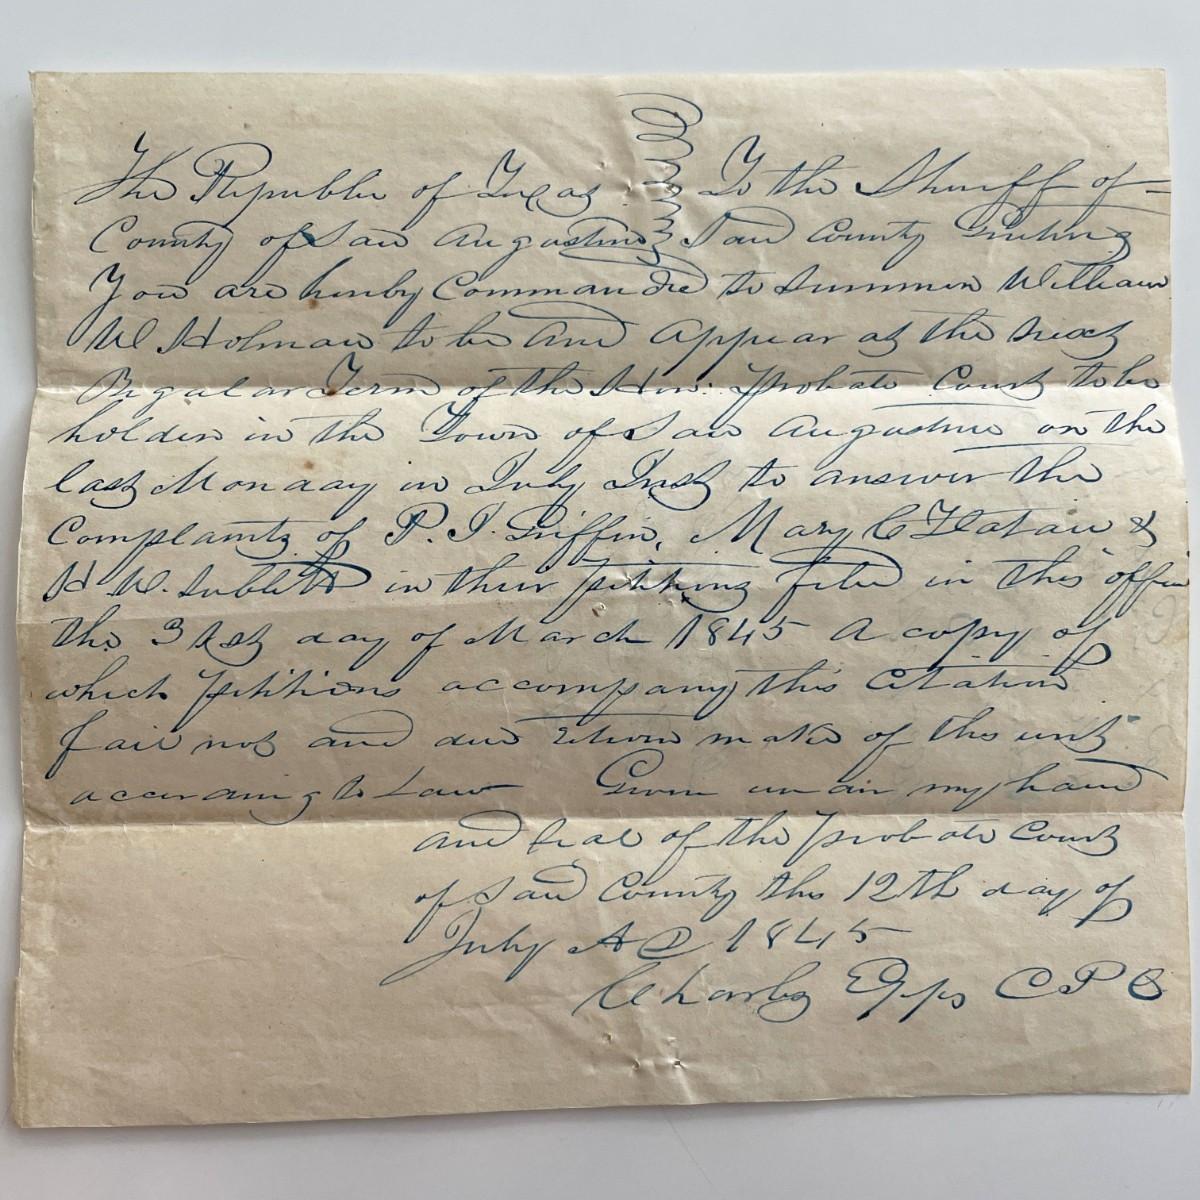 The Republic of Texas To the Sheriff of
County of San Augustine Said County Greeting
You are hereby Commanded to Summon William
W Holman to be and appear at the next
Regular Term of the Hon: Probate Court to be
holden in the Town of San Augustine on the
last Monday in July Inst to answer the
Complaints of P. I. Griffin, Mary C &
H. W. Sublett in their petitions filed in this office
the 31st day of March 1845 A copy of
which petitions accompany this Citation
fail not and due return make of this writ
according to Law Given under my hand
and Seal of the Probate Court
of Said County this 12th day of
July A D 1845
Charles Epps C P C